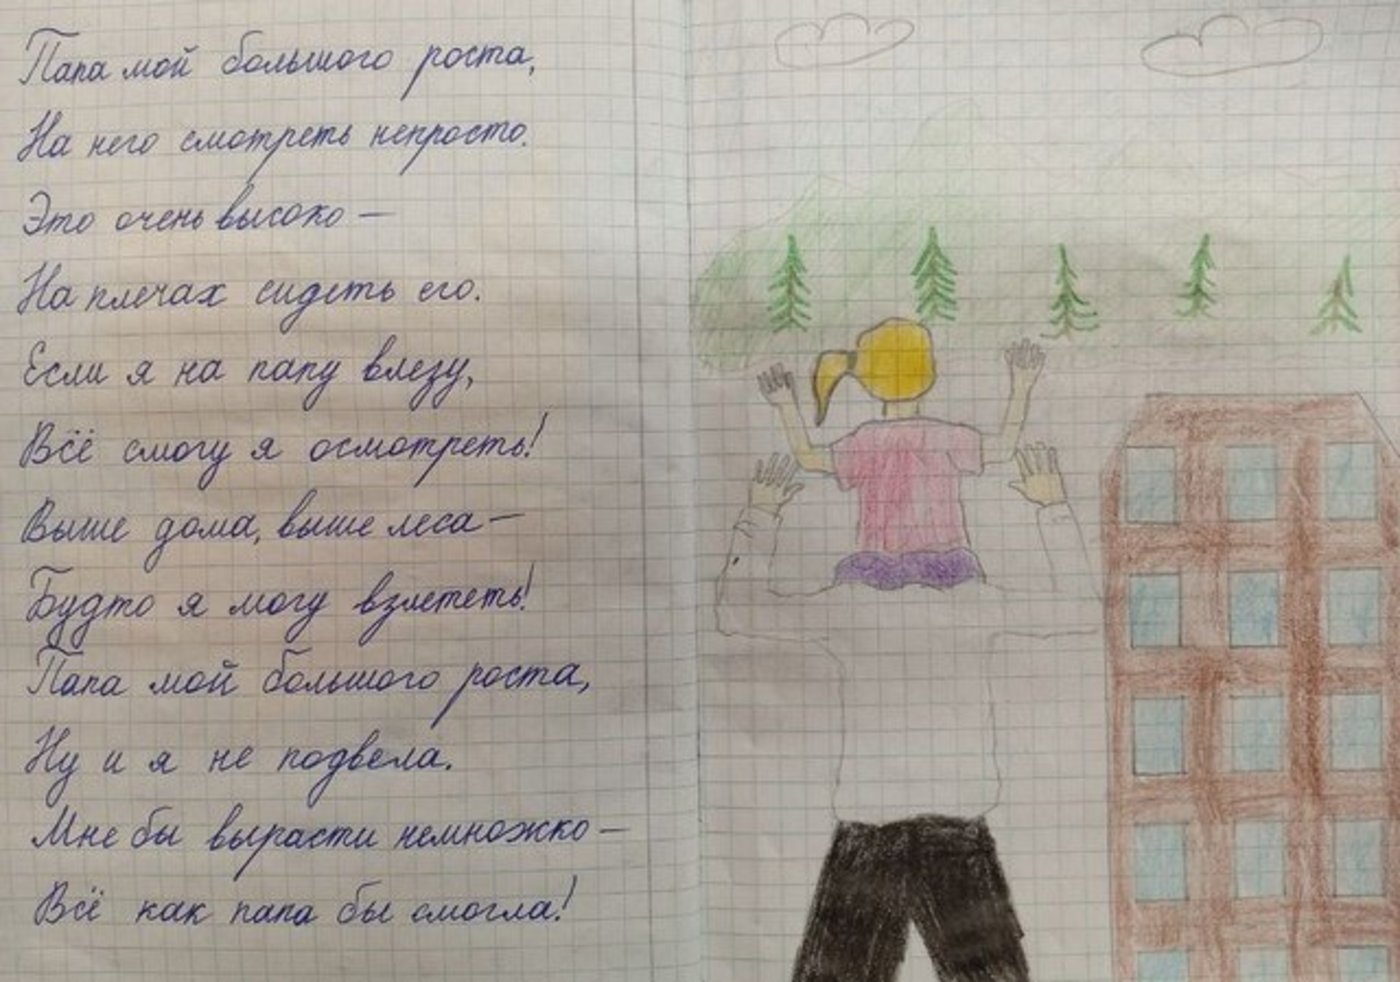 Папа мой большого роста,
На него смотреть непросто.
Это очень высоко —
На плечах сидеть его.
Если я на папу влезу,
Всё смогу я осмотреть!
Выше дома, выше леса —
Будто я могу взлететь!
Папа мой большого роста,
Ну и я не подвела.
Мне бы вырасти немножко —
Всё как папа бы смогла!